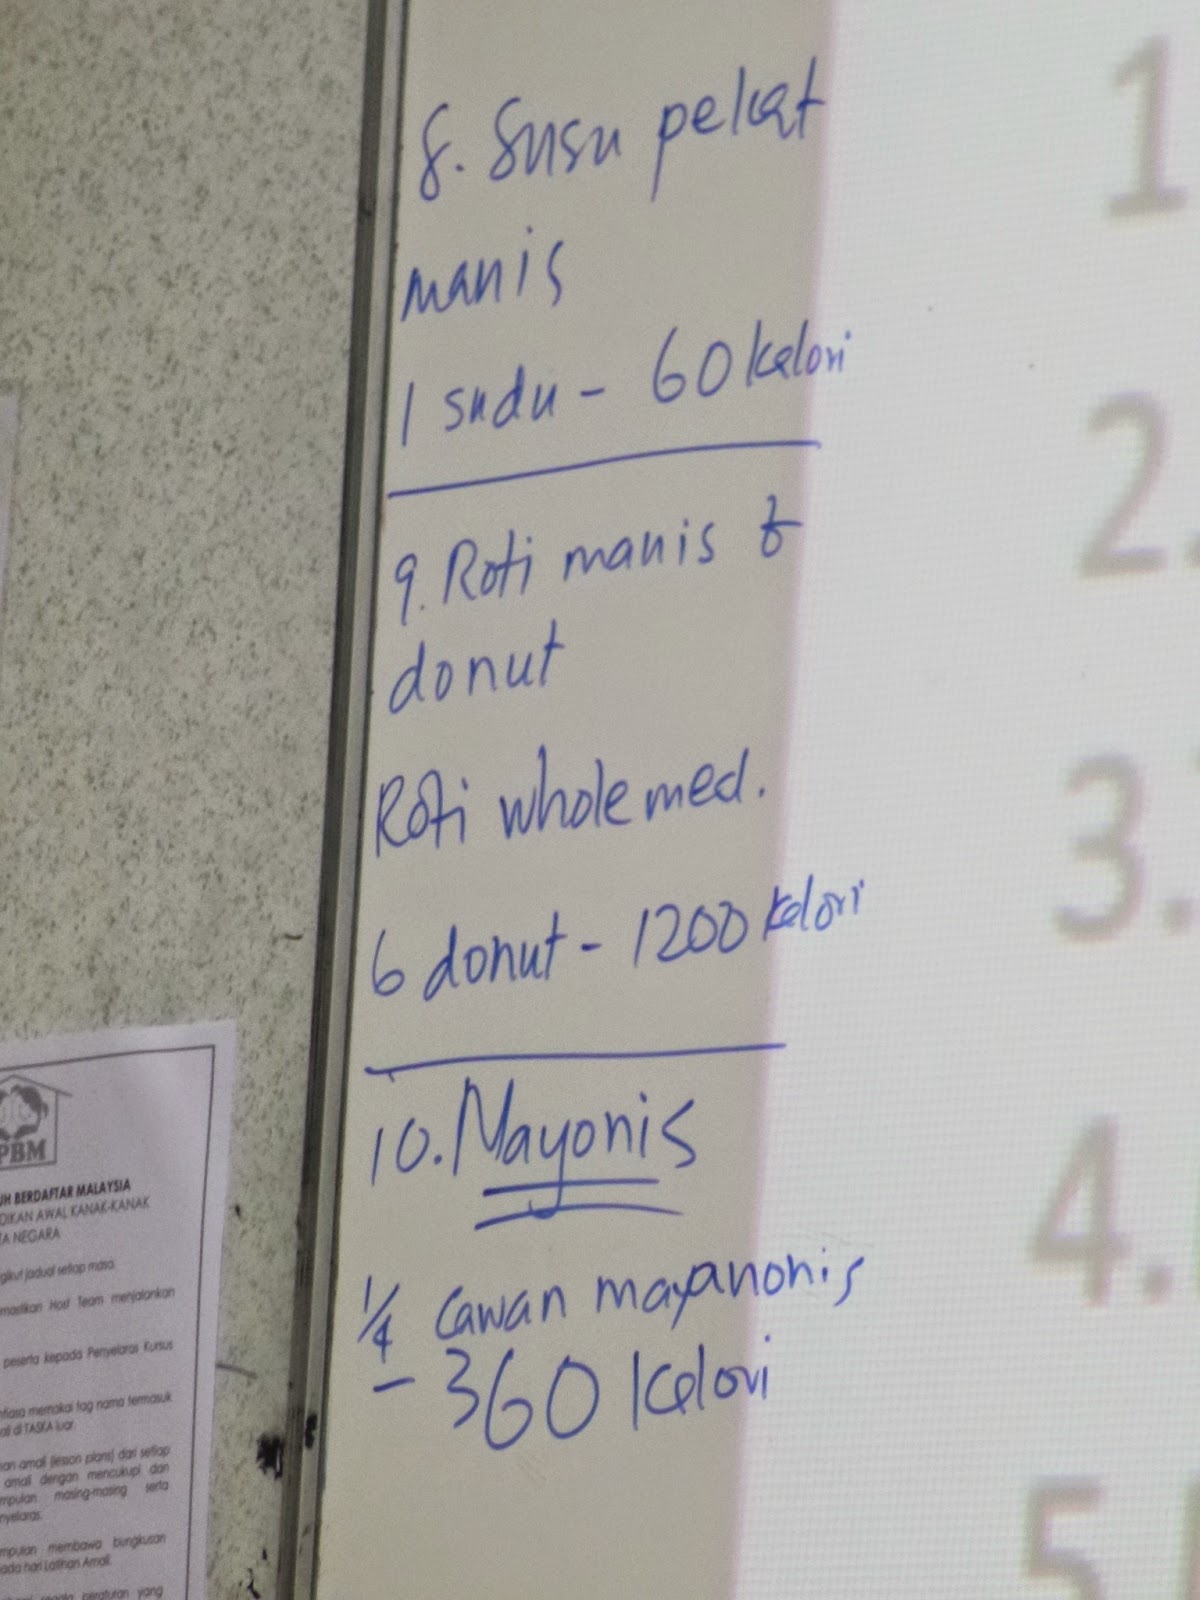 8. Susu pekat
manis
1 sudu - 60 kalori
9. Roti manis &
donut
Roti wholemed.
6 donut - 1200 kalori
10. Mayonis
1/4 cawan mayanonis
- 360 kalori
1
2.
3.
4.
5
PBM
UH BERDAFTAR MALAYSIA
DIKAN AWAL KANAK-KANAK
TA NEGARA
gikut jadual setiap masa.
mastikan Host Team menjalankan
peserta kepada Penyelaras Kursus
ntiasa memakai tag nama termasuk
ali di TASKA luar.
han amali (lesson plans) dari setiap
amali dengan mencukupi dan
mpulan masing-masing serta
nyelaras.
mpulan membawa bungkusan
pada hari Latihan Amali.
segala peraturan yang